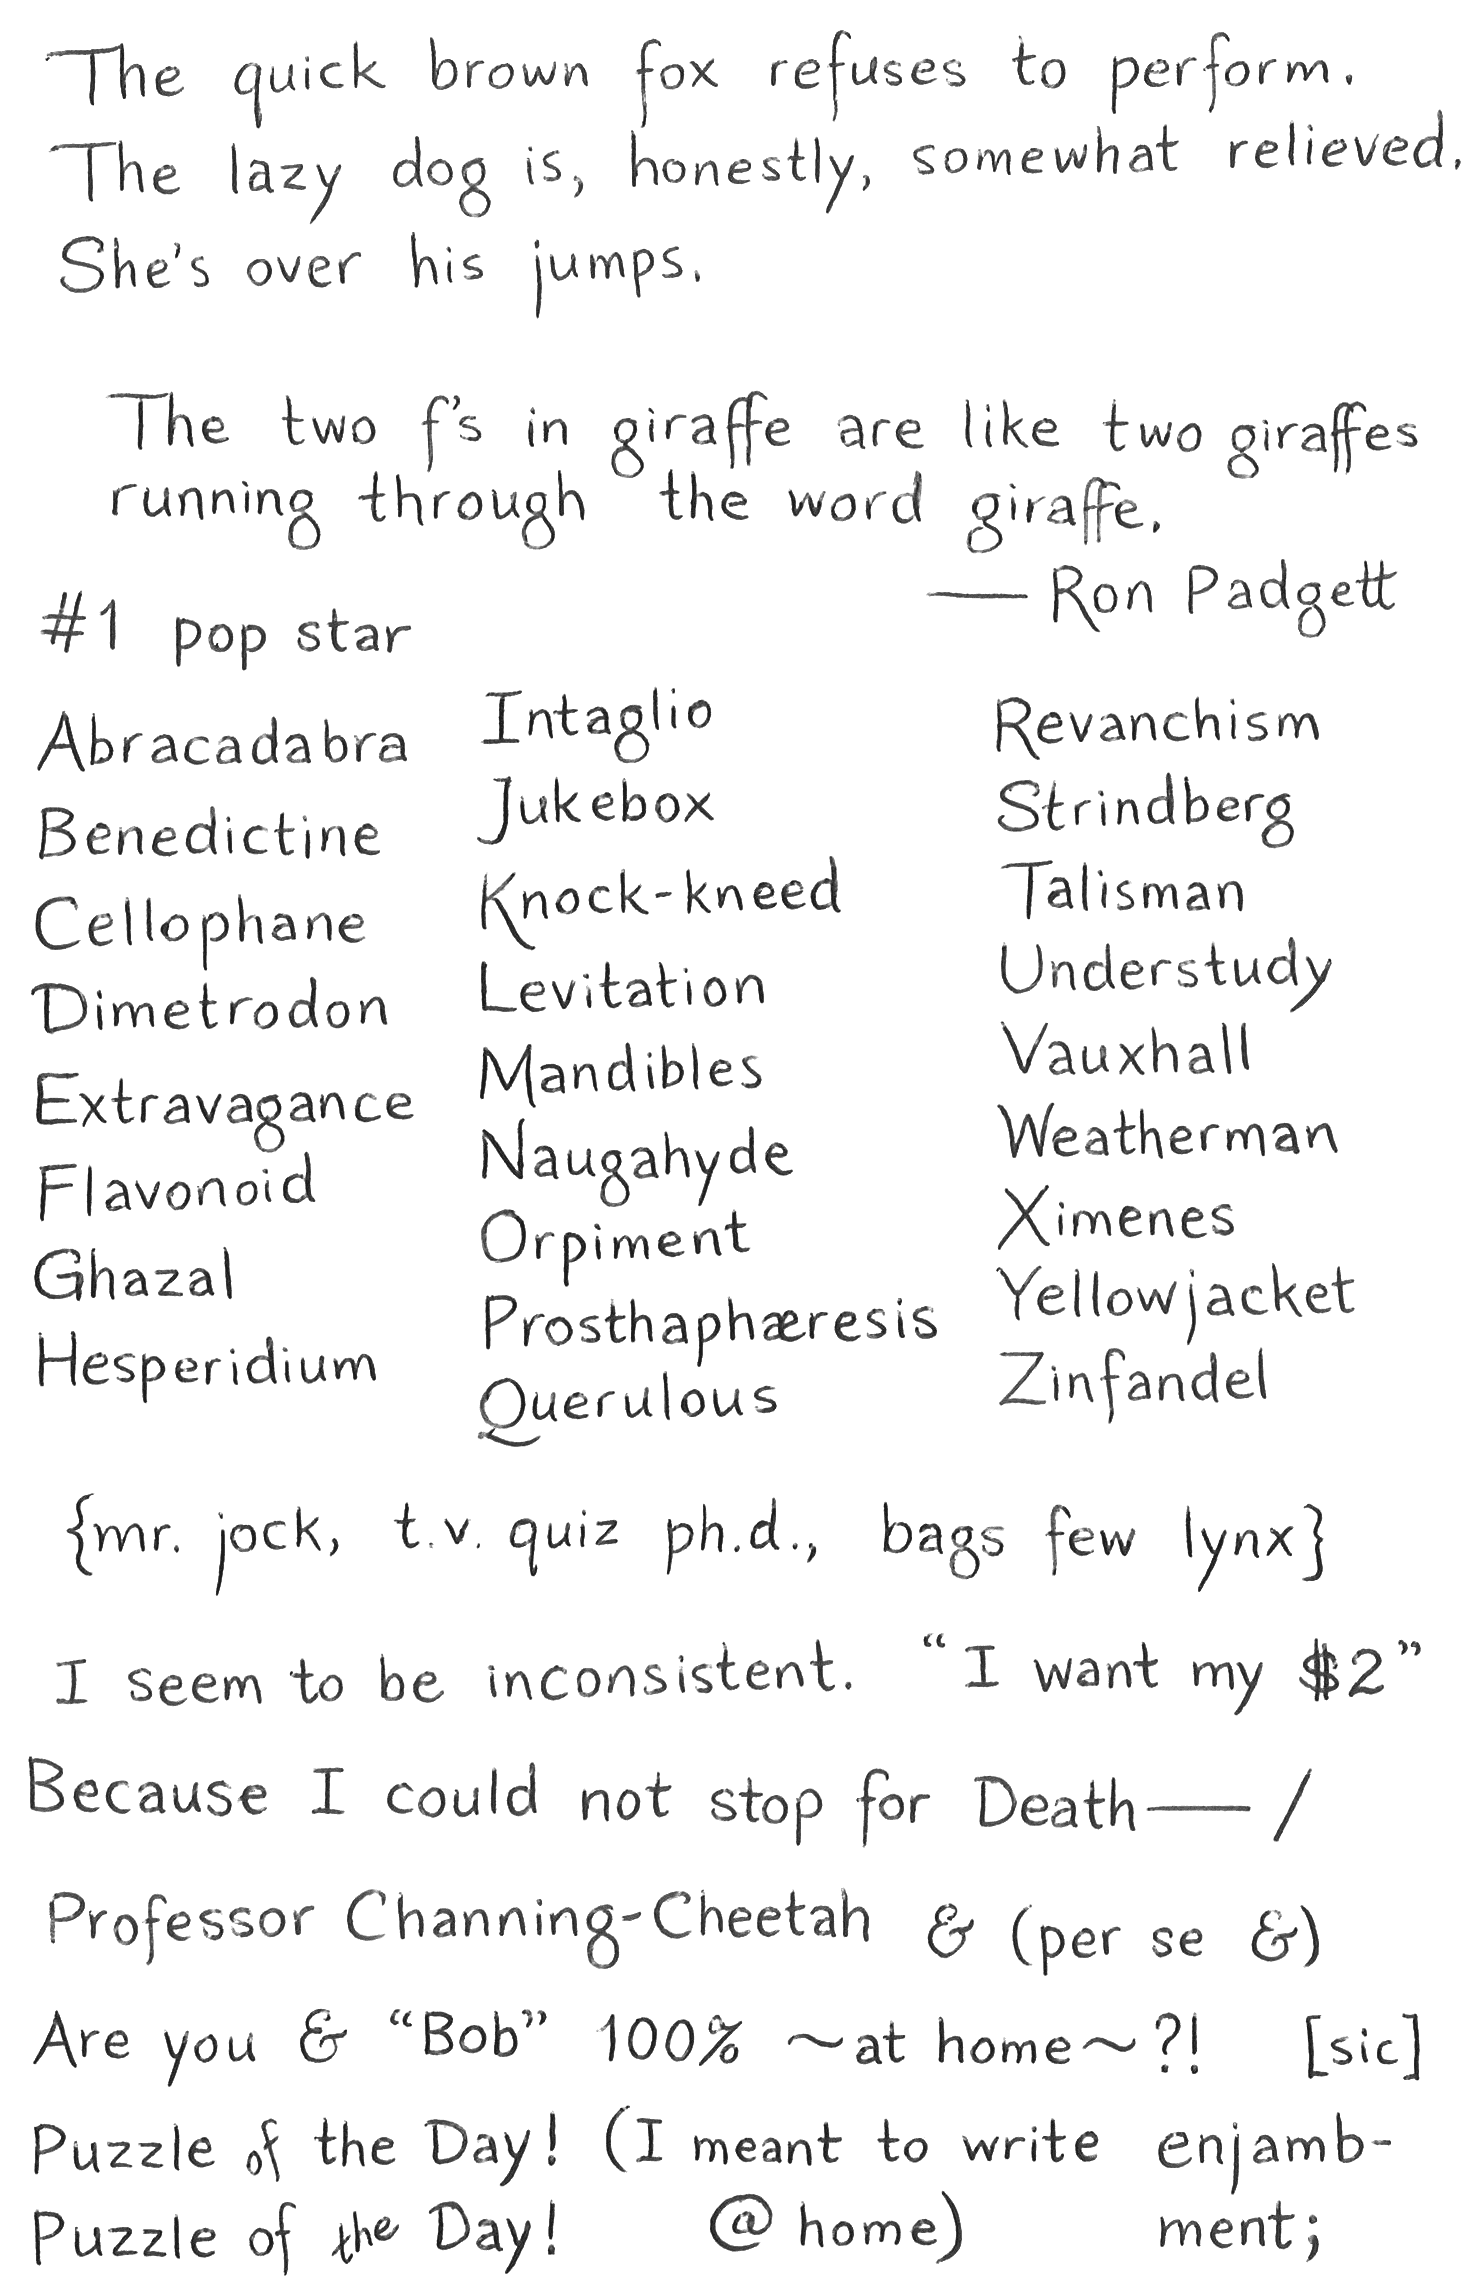 The quick brown fox refuses to perform.
The lazy dog is, honestly, somewhat relieved.
She's over his jumps.
The two f's in giraffe are like two giraffes
running through the word giraffe.
— Ron Padgett
#1 pop star
Abracadabra
Benedictine
Cellophane
Dimetrodon
Extravagance
Flavonoid
Ghazal
Hesperidium
Intaglio
Jukebox
Knock-kneed
Levitation
Mandibles
Naugahyde
Orpiment
Prosthaphæresis
Querulous
Revanchism
Strindberg
Talisman
Understudy
Vauxhall
Weatherman
Ximenes
Yellowjacket
Zinfandel
{mr. jock, t.v. quiz ph.d., bags few lynx}
I seem to be inconsistent. “I want my $2”
Because I could not stop for Death— /
Professor Channing-Cheetah & (per se &)
Are you & “Bob” 100% ~at home~?! [sic]
Puzzle of the Day! (I meant to write enjamb-
Puzzle of the Day! @ home) ment;